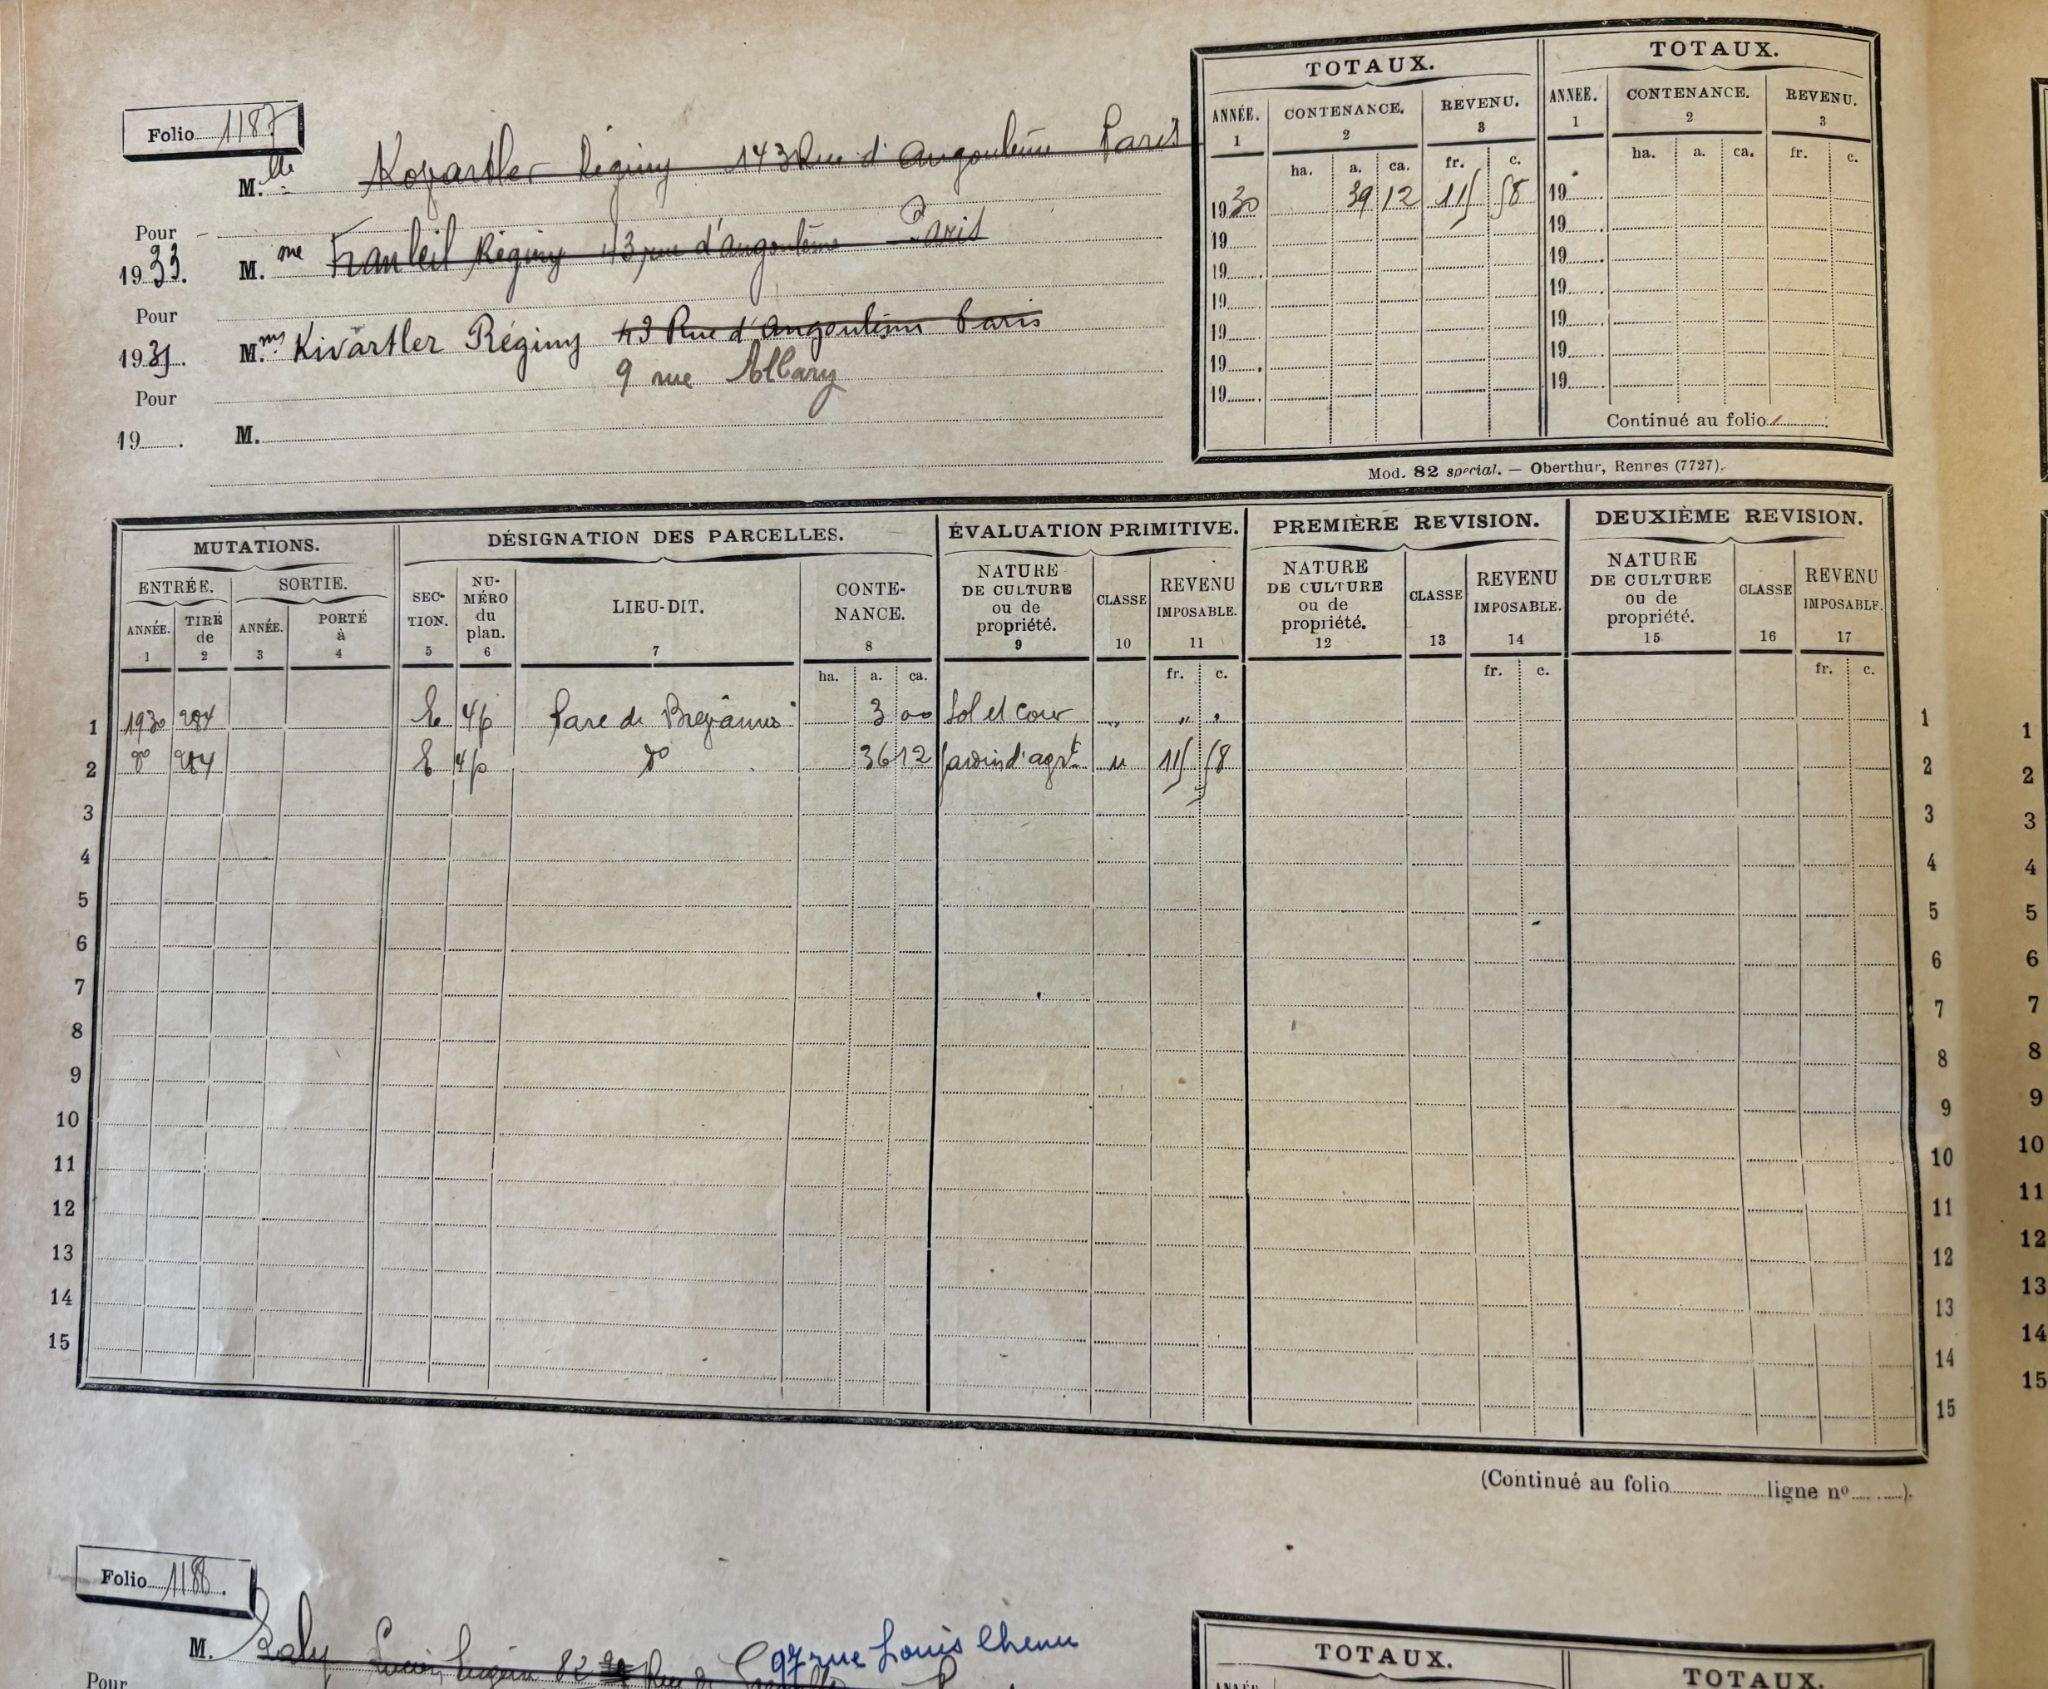 Folio 1187
TOTAUX. TOTAUX.
ANNÉE. CONTENANCE. REVENU. ANNÉE. CONTENANCE. REVENU.
1 2 3 1 2 3
ha. a. ca. fr. c. ha. a. ca. fr. c.
M.lle Régimy 143 Rue d'Angoulême Paris
1930 39 12 115 58 19
19 19
19 19
19 19
19 19
19 19
19 19
Continué au folio
Pour
1933. M.me Régimy 43, rue d'Angoulême Paris
Pour
1935. M.me Kivärtler Régimy 43 Rue d'Angoulême Paris
9 rue
Pour
19 . M.
Mod. 82 special. — Oberthur, Rennes (7727).
MUTATIONS. DÉSIGNATION DES PARCELLES. ÉVALUATION PRIMITIVE. PREMIÈRE REVISION. DEUXIÈME REVISION.
ENTRÉE. SORTIE. SEC-TION. NU-MÉRO du plan. LIEU-DIT. CONTE-NANCE. NATURE DE CULTURE ou de propriété. CLASSE REVENU IMPOSABLE. NATURE DE CULTURE ou de propriété. CLASSE REVENU IMPOSABLE. NATURE DE CULTURE ou de propriété. CLASSE REVENU IMPOSABLE.
ANNÉE. TIRÉ de ANNÉE. PORTÉ à
1 2 3 4 5 6 7 8 9 10 11 12 13 14 15 16 17
ha. a. ca. fr. c. fr. c. fr. c.
1 1930 284 E 4p Parc de Brévannes 3 00 Sol et cour " " " 1 1
2 do 284 E 4p do 36 12 Jardin d'agrt u 115 58 2 2
3 3 3
4 4 4
5 5 5
6 6 6
7 7 7
8 8 8
9 9 9
10 10 10
11 11 11
12 12 12
13 13 13
14 14 14
15 15 15
(Continué au folio ligne no ).
Folio 1188.
M. Lucien 82 Rue de 97 rue Louis Chenu
Pour
TOTAUX. TOTAUX.